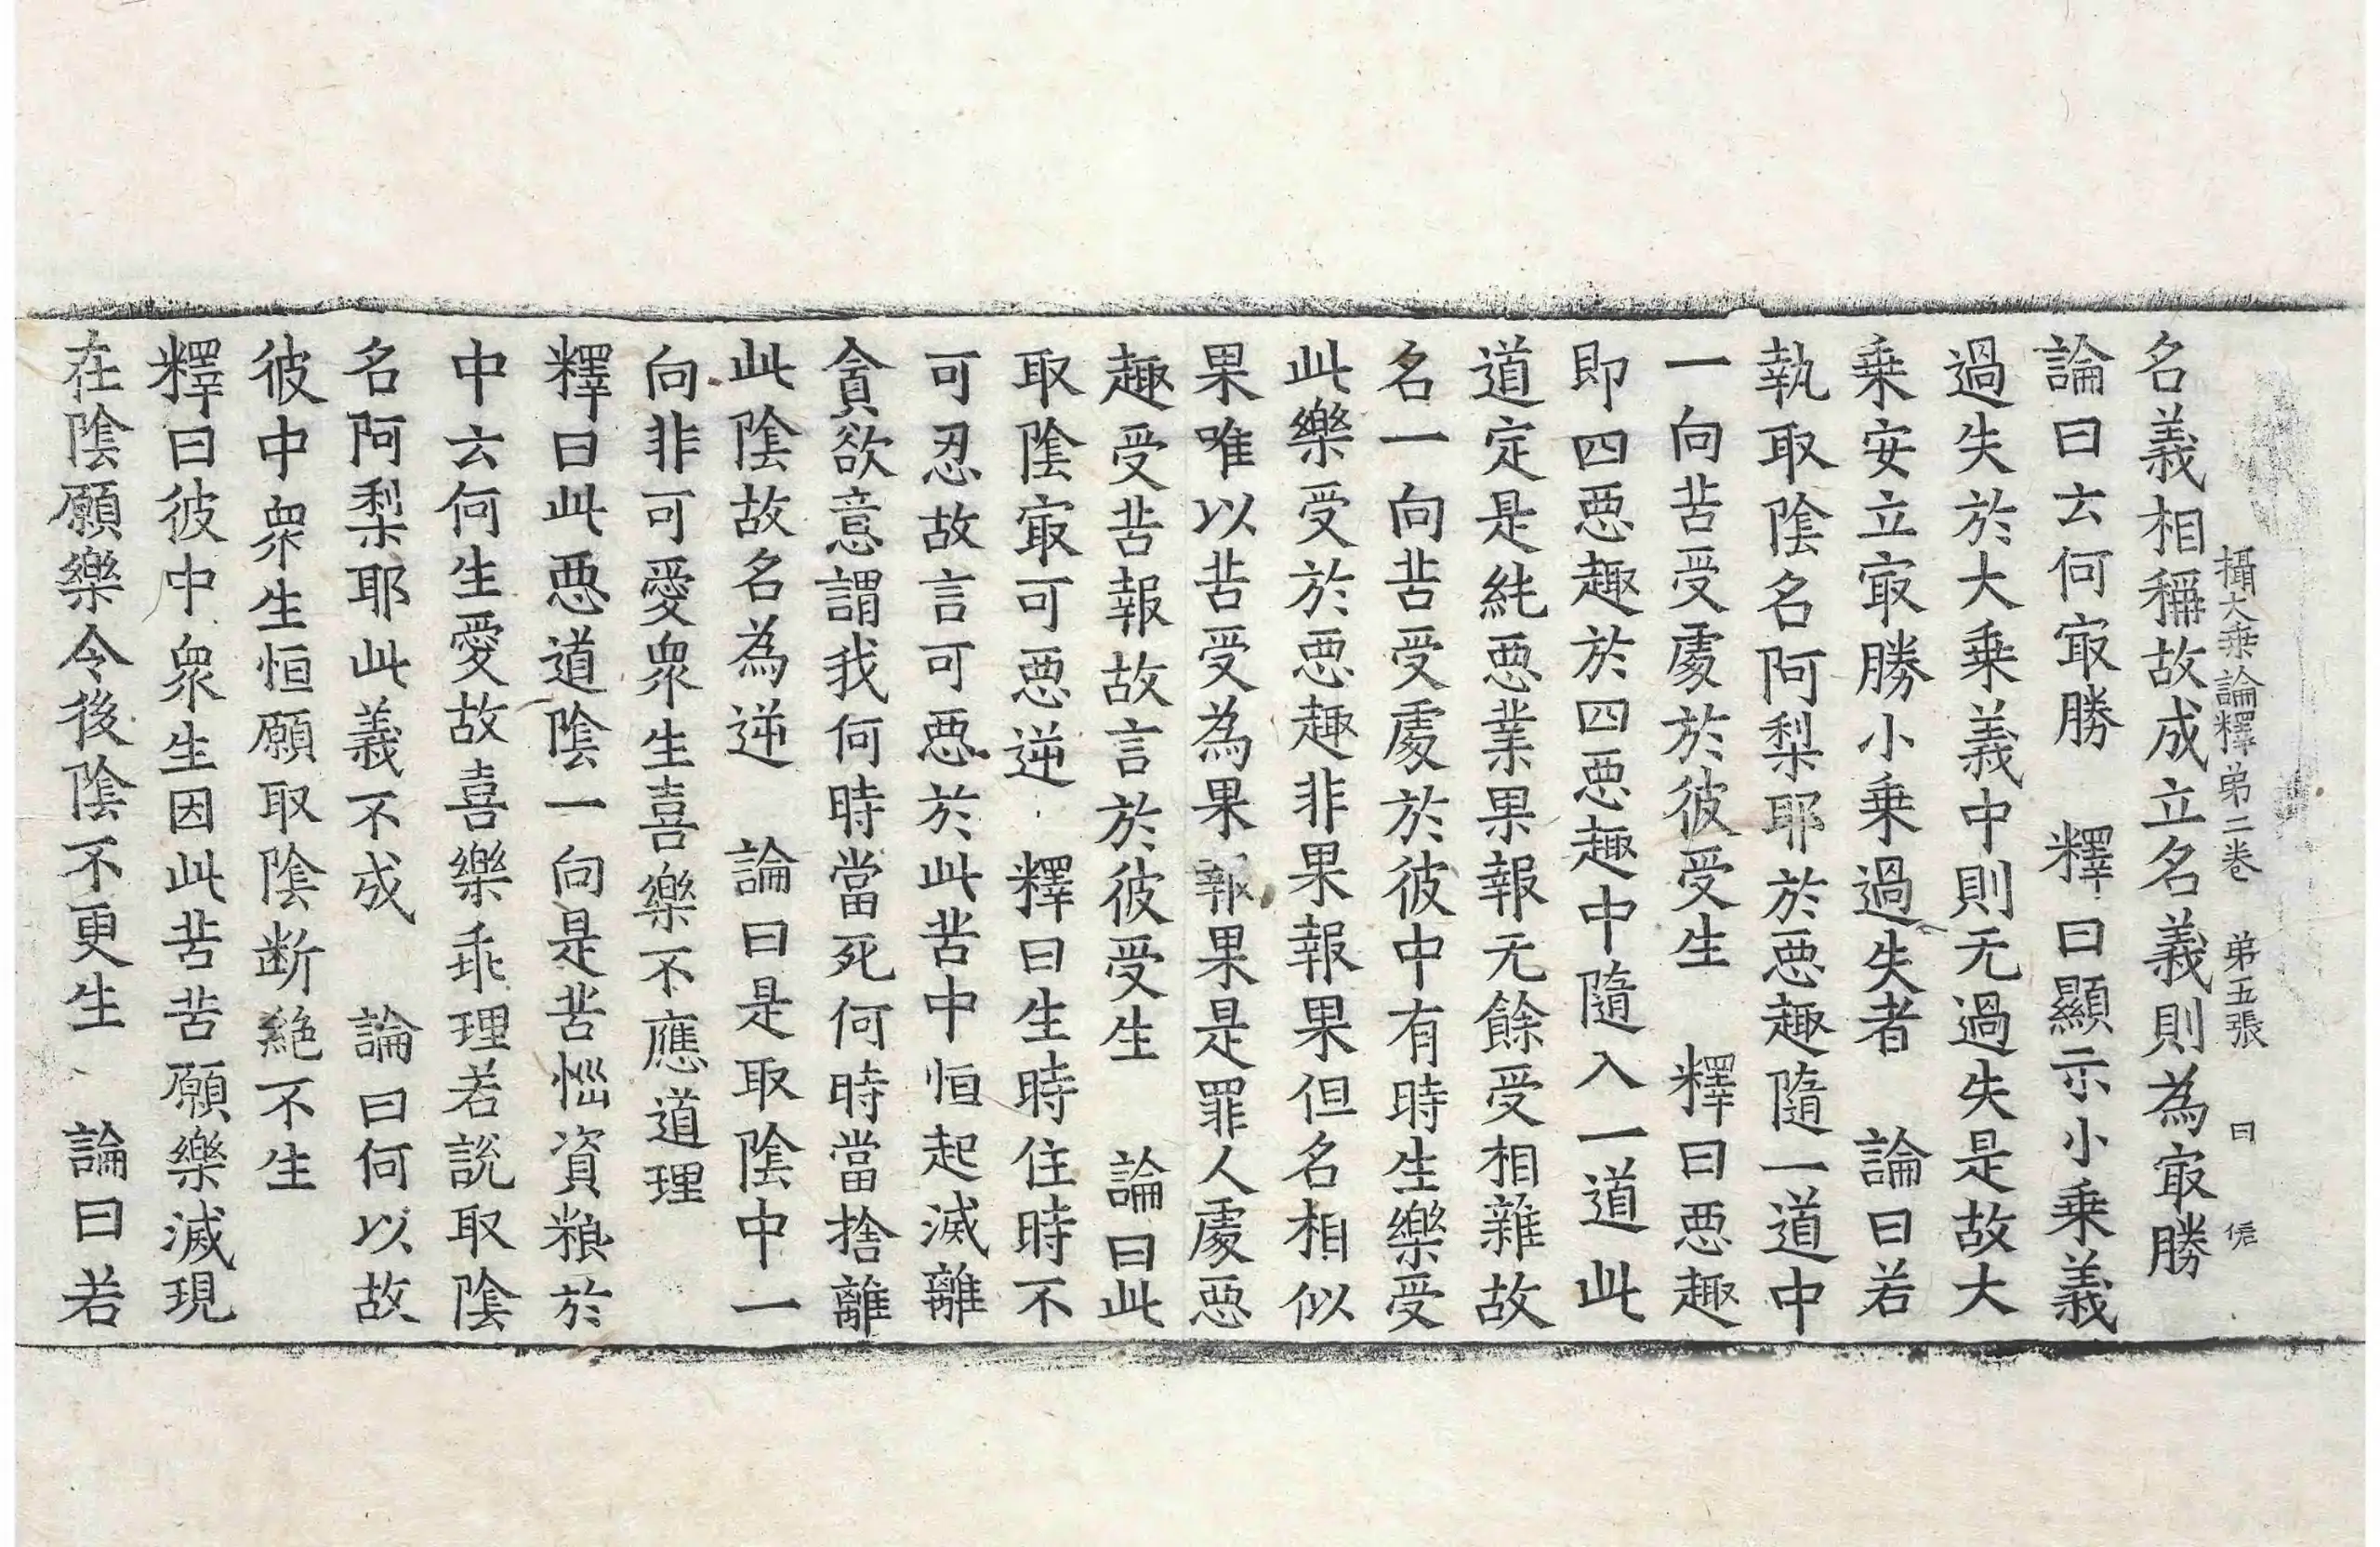 攝大乗論釋弟二卷 弟五張 曰
名義相稱故成立名義則為㝡勝
論曰云何㝡勝 釋曰顯示小乗義
過失於大乗義中則无過失是故大
乗安立㝡勝小乗過失者 論曰若
執取隂名阿梨耶於惡趣隨一道中
一向苦受處於彼受生 釋曰惡趣
即四惡趣於四惡趣中隨入一道此
道定是純惡業果報无餘受相雜故
名一向苦受處於彼中有時生樂受
此樂受於惡趣非果報果但名相似
果唯以苦受為果報果是罪人處惡
趣受苦報故言於彼受生 論曰此
取隂㝡可惡逆 釋曰生時住時不
可忍故言可惡於此苦中恒起滅離
貪欲意謂我何時當死何時當捨離
此隂故名為逆 論曰是取隂中一
向非可愛衆生喜樂不應道理
釋曰此惡道隂一向是苦惱資粮於
中云何生愛故喜樂乖理若說取隂
名阿梨耶此義不成 論曰何以故
彼中衆生恒願取隂断絶不生
釋曰彼中衆生因此苦苦願樂滅現
在隂願樂令後隂不更生 論曰若